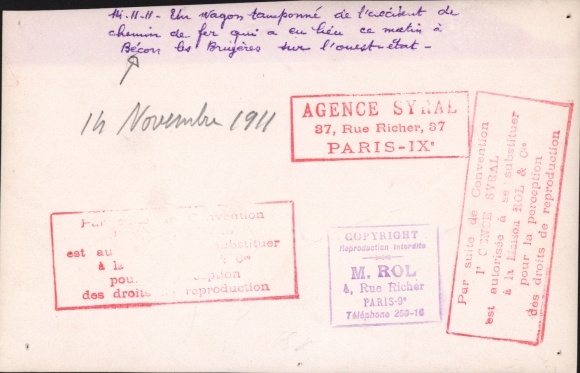 14-11-11- Un wagon tamponné de l'accident de
chemin de fer qui a eu lieu ce matin à
Bécon les Bruyères sur l'ouest-état-
14 Novembre 1911
AGENCE SYRAL
37, Rue Richer, 37
PARIS-IXe
Par suite de Convention
l'AGENCE SYRAL
est autorisée à se substituer
à la Maison ROL & Cie
pour la perception
des droits de reproduction
Par suite de Convention
est au substituer
à la & Cie
pour la perception
des droits de reproduction
COPYRIGHT
Reproduction interdite
M. ROL
4, Rue Richer
PARIS-9e
Téléphone 259-16